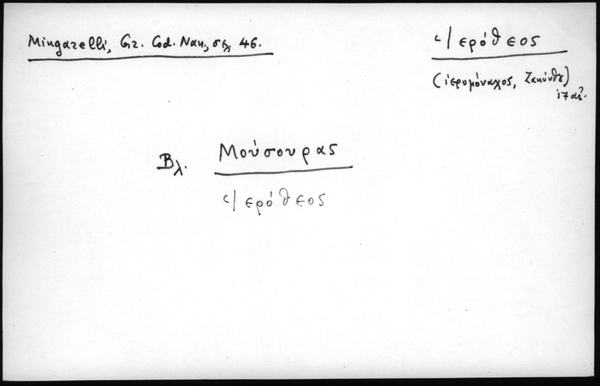 Mingarelli, Gr. Cod. Nan., σελ. 46.
Ἱερόθεος
(ἱερομόναχος, Ζακύνθου)
17 αἰ.
Βλ. Μούσουρας
Ἱερόθεος